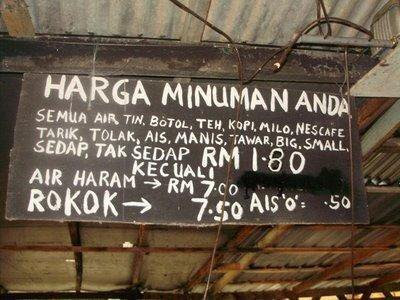 HARGA MINUMAN ANDA
SEMUA AIR TIN, BOTOL, TEH, KOPI, MILO, NESCAFE
TARIK, TOLAK, AIS, MANIS, TAWAR, BIG, SMALL,
SEDAP, TAK SEDAP RM 1.80
KECUALI
AIR HARAM → RM 7.00
ROKOK → 7.50 AIS "O" = .50